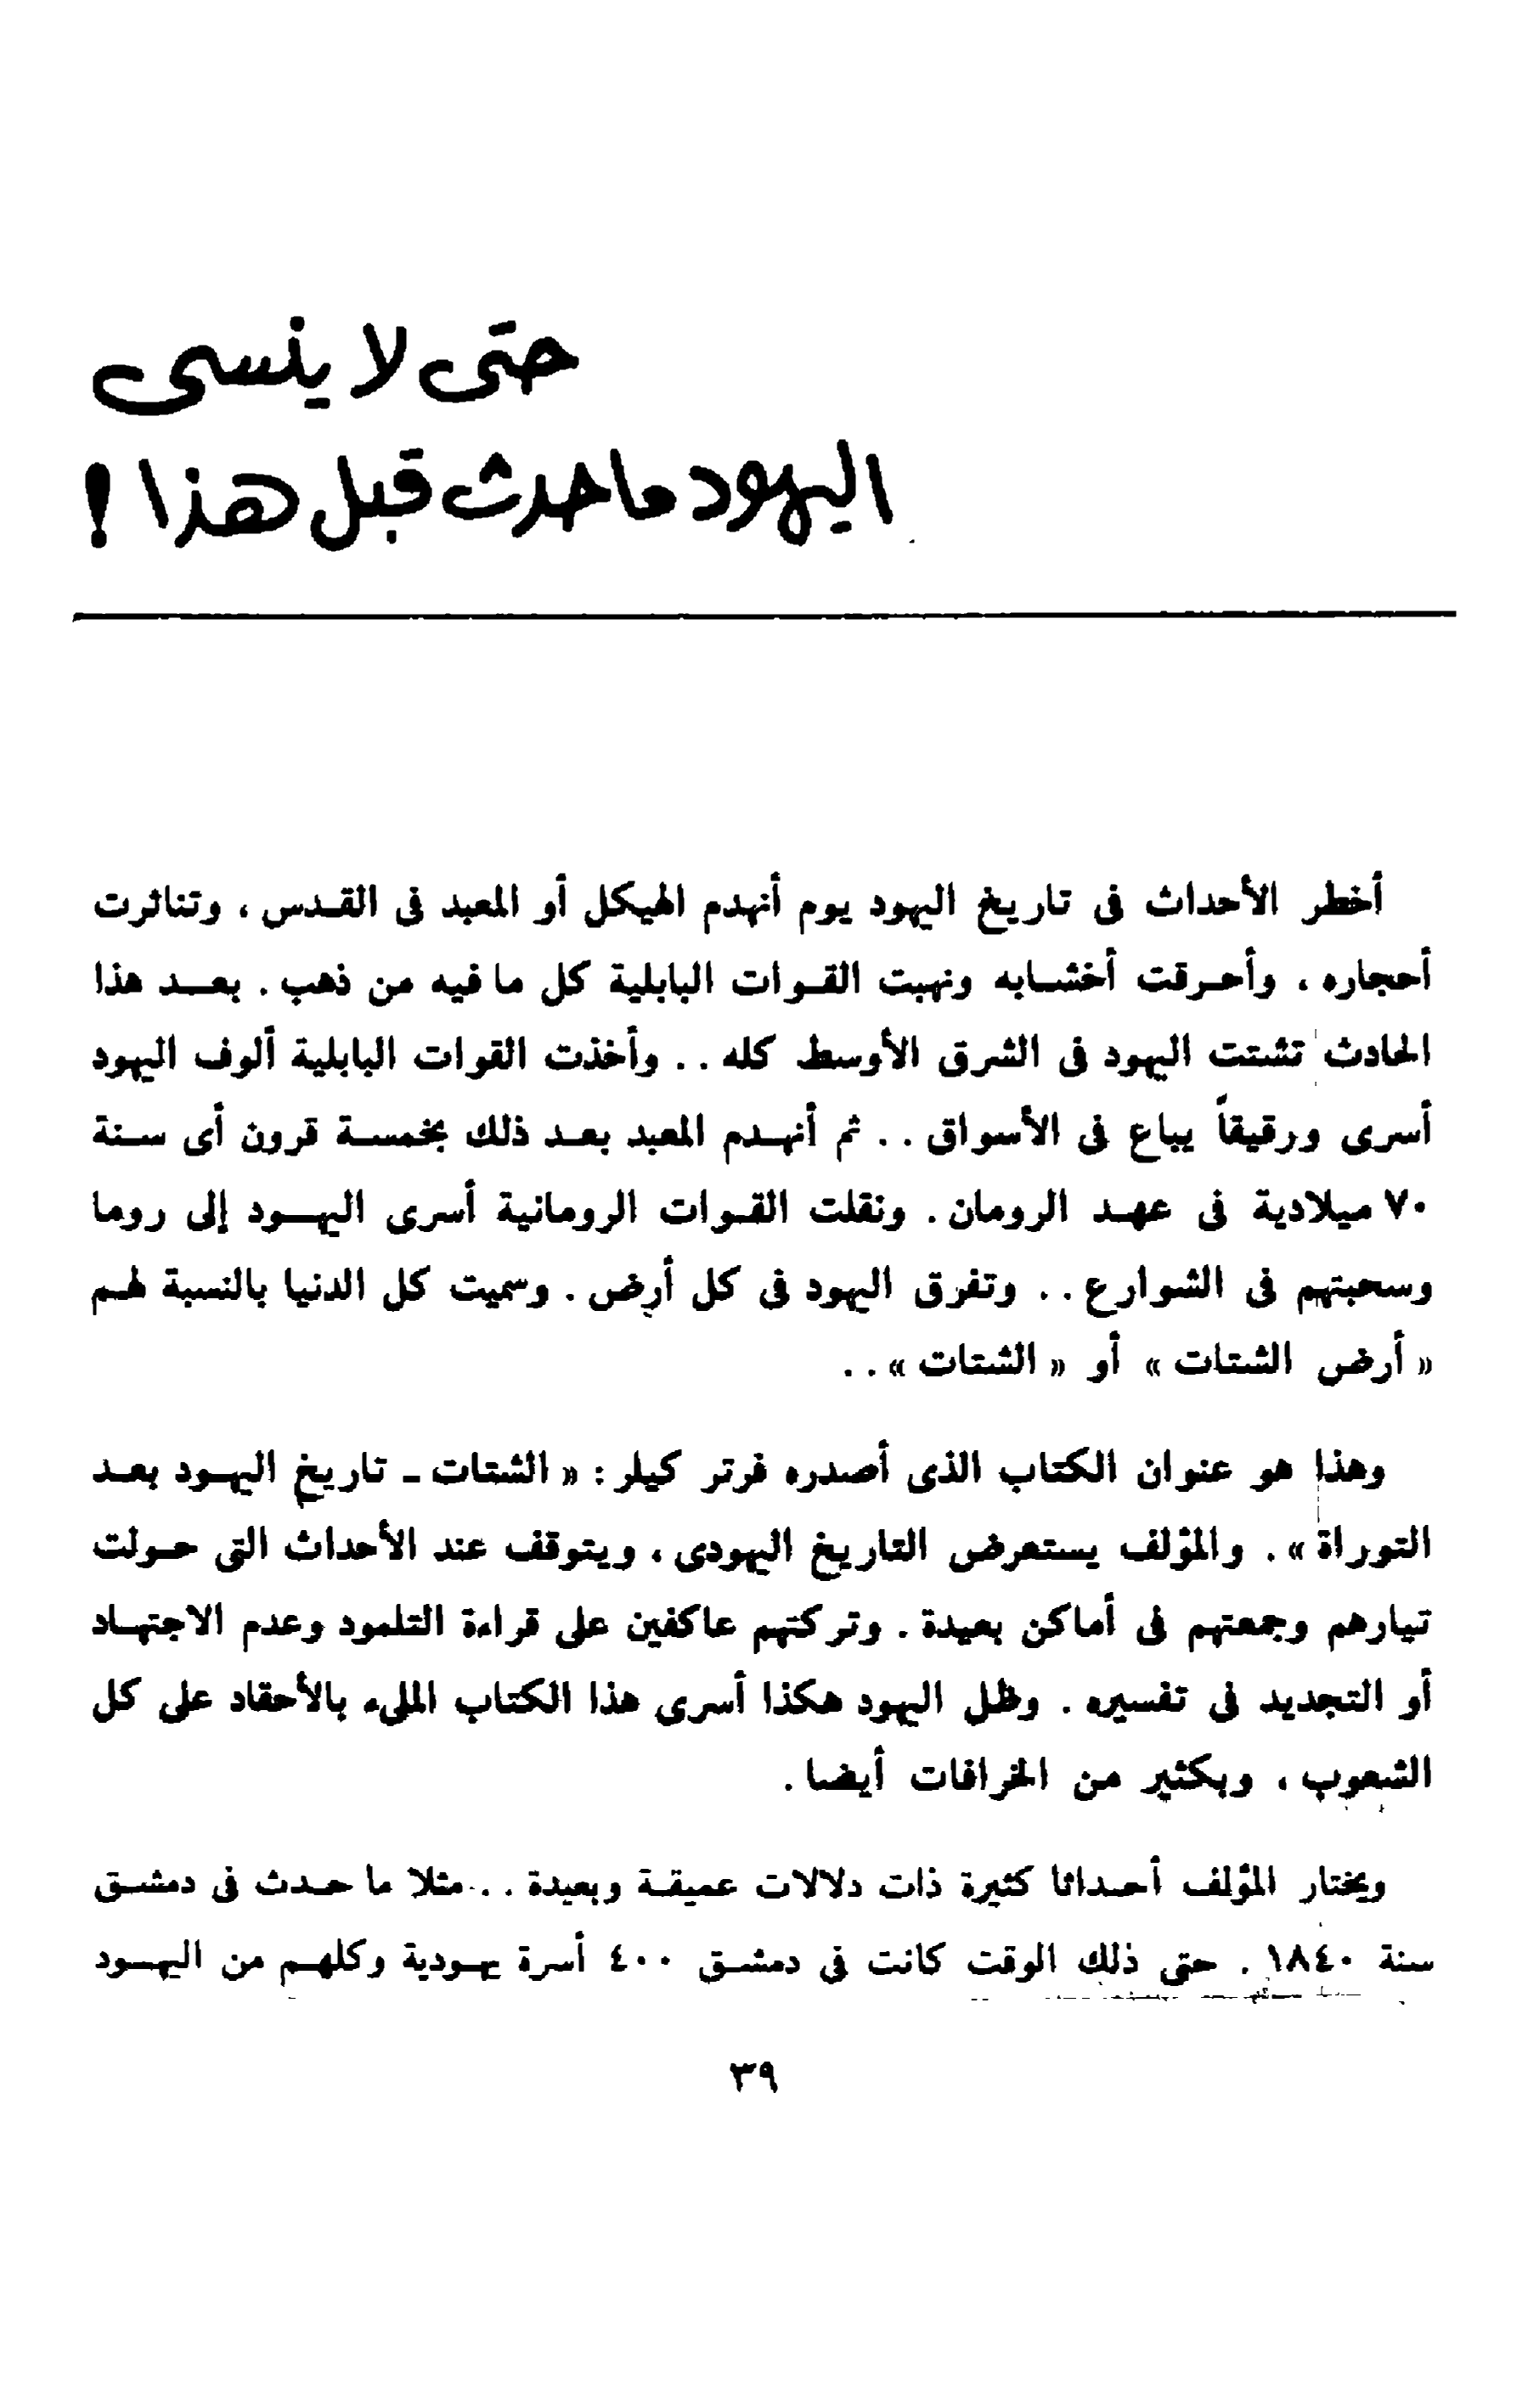 حتى لا ينسى
اليهود ما حدث قبل هذا !
أخطر الأحداث فى تاريخ اليهود يوم أنهدم الهيكل أو المعبد فى القدس ، وتناثرت
أحجاره ، وأحرقت أخشابه ونهبت القوات البابلية كل ما فيه من ذهب . بعد هذا
الحادث تشتت اليهود فى الشرق الأوسط كله . . وأخذت القوات البابلية ألوف اليهود
أسرى ورقيقاً يباع فى الأسواق . . ثم أنهدم المعبد بعد ذلك بخمسة قرون أى سنة
٧٠ ميلادية فى عهد الرومان . ونقلت القوات الرومانية أسرى اليهود إلى روما
وسحبتهم فى الشوارع . . وتفرق اليهود فى كل أرض . وسميت كل الدنيا بالنسبة لهم
« أرض الشتات » أو « الشتات » . .
وهذا هو عنوان الكتاب الذى أصدره فرتر كيلر : « الشتات - تاريخ اليهود بعد
التوراة » . والمؤلف يستعرض التاريخ اليهودى ، ويتوقف عند الأحداث التى حولت
تيارهم وجمعتهم فى أماكن بعيدة . وتركتهم عاكفين على قراءة التلمود وعدم الاجتهاد
أو التجديد فى تفسيره . وظل اليهود هكذا أسرى هذا الكتاب الملىء بالأحقاد على كل
الشعوب ، وبكثير من الخرافات أيضا .
ويختار المؤلف أحداثا كثيرة ذات دلالات عميقة وبعيدة . . مثلا ما حدث فى دمشق
سنة ١٨٤٠ . حتى ذلك الوقت كانت فى دمشق ٤٠٠ أسرة يهودية وكلهم من اليهود
٣٩